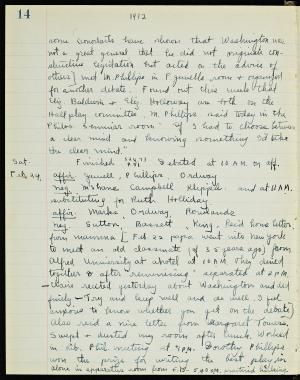 14
1912
some senators have shown that Washington was
not a great general that he did not originate con-
structive legislation but acted on the advice of
others] met M. Phillips in F. Yewell's room & organized
for another debate. Found out this week that
Eliz. Baldwin & Eliz. Holloway are both on the
Hall play committee. M. Phillips said today in the
Philos. Seminar room "If I had to choose between
a clear mind and knowing something I'd take
the clear mind."
Sat. Finished & debated at 10 A.M. on aff.
Feb 24. aff: Yewell, Phillips, Ordway
neg: McShane Campbell and at 11 A.M.
substituting for Ruth Holliday
aff: Marks, Ordway,
neg: Sutton, Bassett, King. Rec'd home letter
from mamma [Feb 22 papa went into New York
to meet an old classmate (of 35 years ago) from
Alfred University at a hotel at 10 A.M. They dined
together & after "reminiscing" separated at 2 P.M.
recited yesterday about Washington and did
finely — Try and keep well and do well. I feel
anxious to know whether you get on the debate]
Also rec'd a nice letter from Margaret Towers.
Swept & dusted my room after lunch. Worked
in lib. Phil. meeting at 8 P.M. Dorothy Phillips
won the prize for writing the best play in
alone in apparatus room from 5.15 - 5.40 P.M. practised